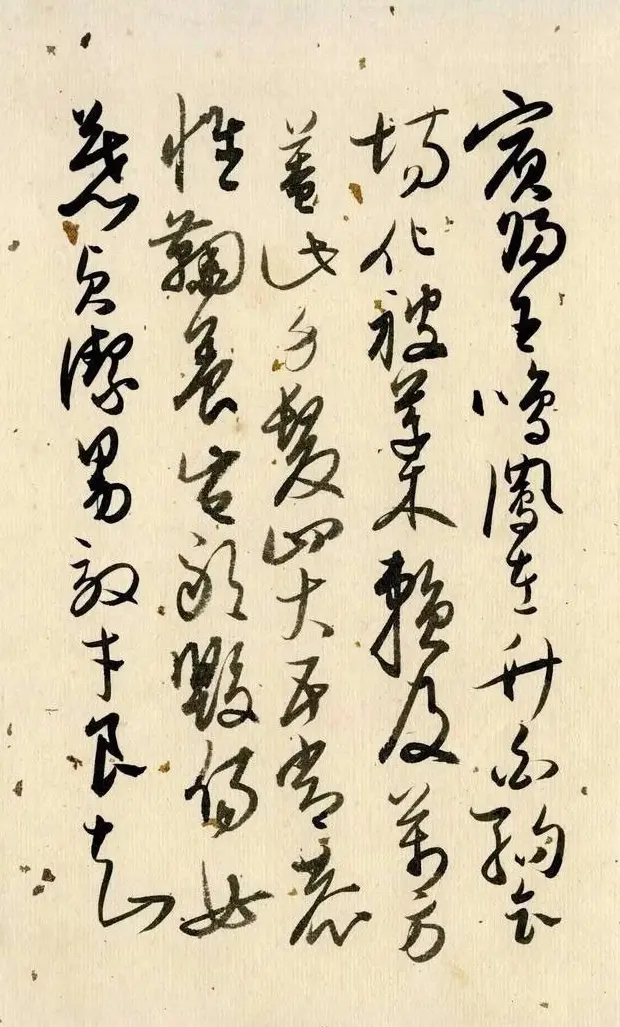 賓歸王鳴鳳在竹白駒食
場化被草木賴及萬方
蓋此身髮四大五常恭
惟鞠養豈敢毀傷女
慕貞潔男效才良知